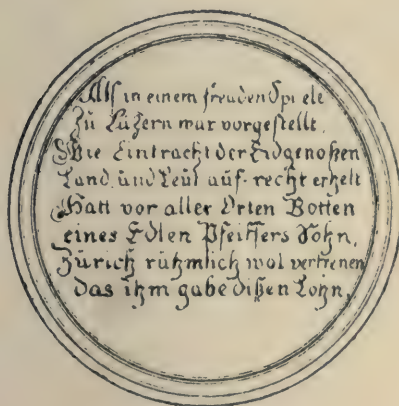 Alß in einem freuden Spiele
Zu Lužern war vorgestellt.
Wie Eintracht der Eidgenoßen
Land, und Leut auf-recht erhelt
Hatt vor aller Orten Botten
eines Edlen Pfeiffers Sohn,
Zürich rühmlich wol vertretten
das ihm gabe dißen Lohn,